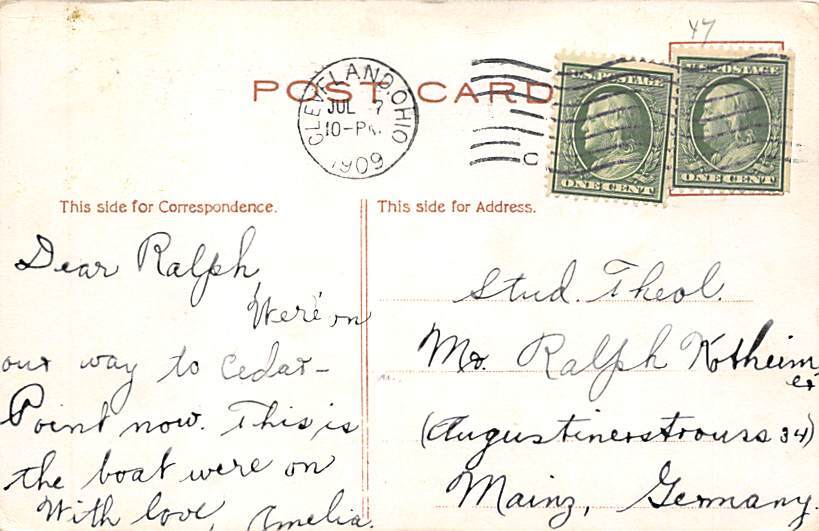 47
POST CARD
CLEVELAND, OHIO
JUL 7
10-PM.
1909
C
U.S. POSTAGE
ONE CENT
U.S. POSTAGE
ONE CENT
This side for Correspondence.
This side for Address.
Dear Ralph,
We're on
our way to Cedar-
Point now. This is
the boat were on
With love, Amelia.
Stud. Theol.
Mr. Ralph Kotheim
er
(Augustinerstrouss 34)
Mainz, Germany.